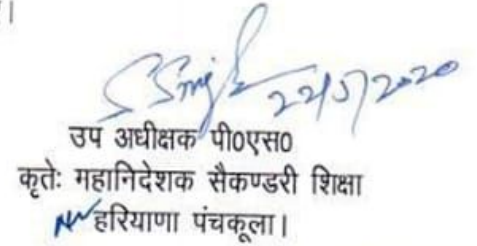 ।
22/5/2020
उप अधीक्षक पी०एस०
कृतेः महानिदेशक सैकण्डरी शिक्षा
हरियाणा पंचकूला।